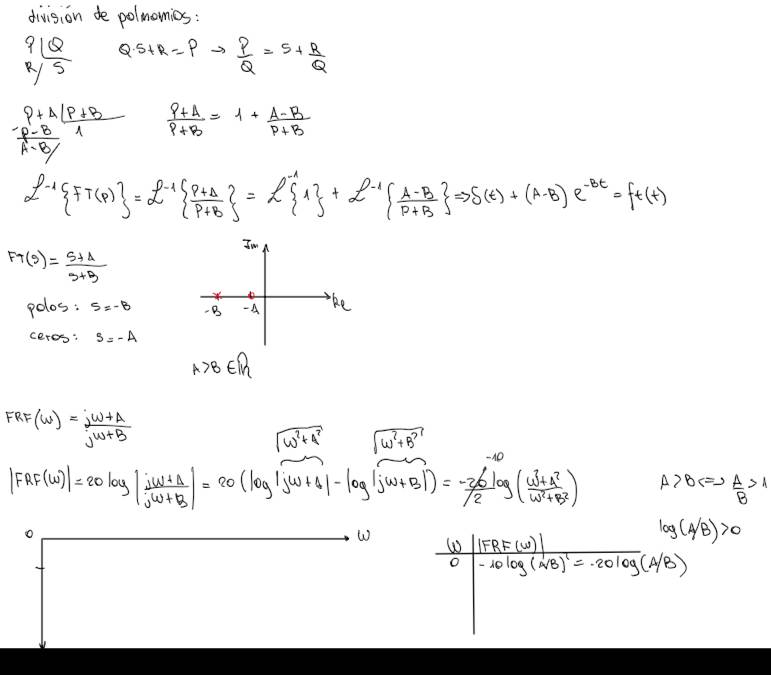 división de polinomios:
P | Q
R/ S
Q·S+R=P → P/Q = S + R/Q
P+A | P+B
-P-B 1
A-B/
(P+A)/(P+B) = 1 + (A-B)/(P+B)
ℒ⁻¹{FT(p)} = ℒ⁻¹{(P+A)/(P+B)} = ℒ⁻¹{1} + ℒ⁻¹{(A-B)/(P+B)} ⇒ δ(t) + (A-B) e^(-Bt) = ft(t)
FT(s) = (s+A)/(s+B)
polos: s=-B
ceros: s=-A
Im
Re
-B
-A
A>B ∈ ℝ
FRF(ω) = (jω+A)/(jω+B)
√(ω²+A²)
√(ω²+B²)
|FRF(ω)| = 20 log |(jω+A)/(jω+B)| = 20 (log |jω+A| - log |jω+B|) = -20/2 log ((ω²+A²)/(ω²+B²))
-10
A>B ⇔ A/B > 1
log(A/B) > 0
0
ω
ω | |FRF(ω)|
0 | -10 log (A/B)² = -20 log (A/B)